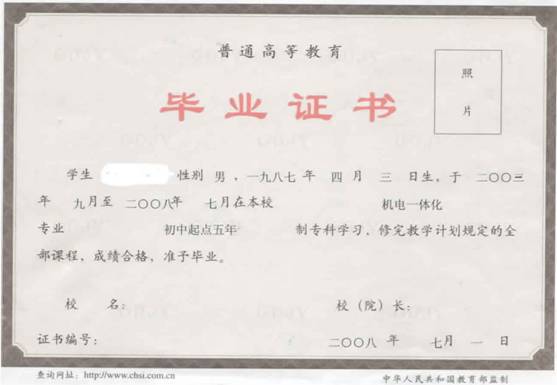 普通高等教育
照
片
毕业证书
学生 性别 男，一九八七年 四 月 三 日生，于 二〇〇三
年 九月至 二〇〇八年 七月在本校 机电一体化
专业 初中起点五年 制专科学习，修完教学计划规定的全
部课程，成绩合格，准予毕业。
校 名： 校（院）长：
证书编号： 二〇〇八 年 七月 一 日
查询网址：http://www.chsi.com.cn 中华人民共和国教育部监制